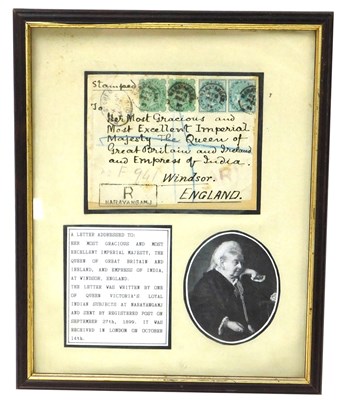 Stamped
To
Her Most Gracious and
Most Excellent Imperial
Majesty The Queen of
Great Britain and Ireland
and Empress of India.
Windsor.
ENGLAND.
R
NARAYANGANJ
A LETTER ADDRESSED TO:
HER MOST GRACIOUS AND MOST
EXCELLENT IMPERIAL MAJESTY, THE
QUEEN OF GREAT BRITAIN AND
IRELAND, AND EMPRESS OF INDIA,
AT WINDSOR, ENGLAND.
THE LETTER WAS WRITTEN BY ONE
OF QUEEN VICTORIA'S LOYAL
INDIAN SUBJECTS AT NARAYANGANJ
AND SENT BY REGISTERED POST ON
SEPTEMBER 27th, 1899. IT WAS
RECEIVED IN LONDON ON OCTOBER
14th.